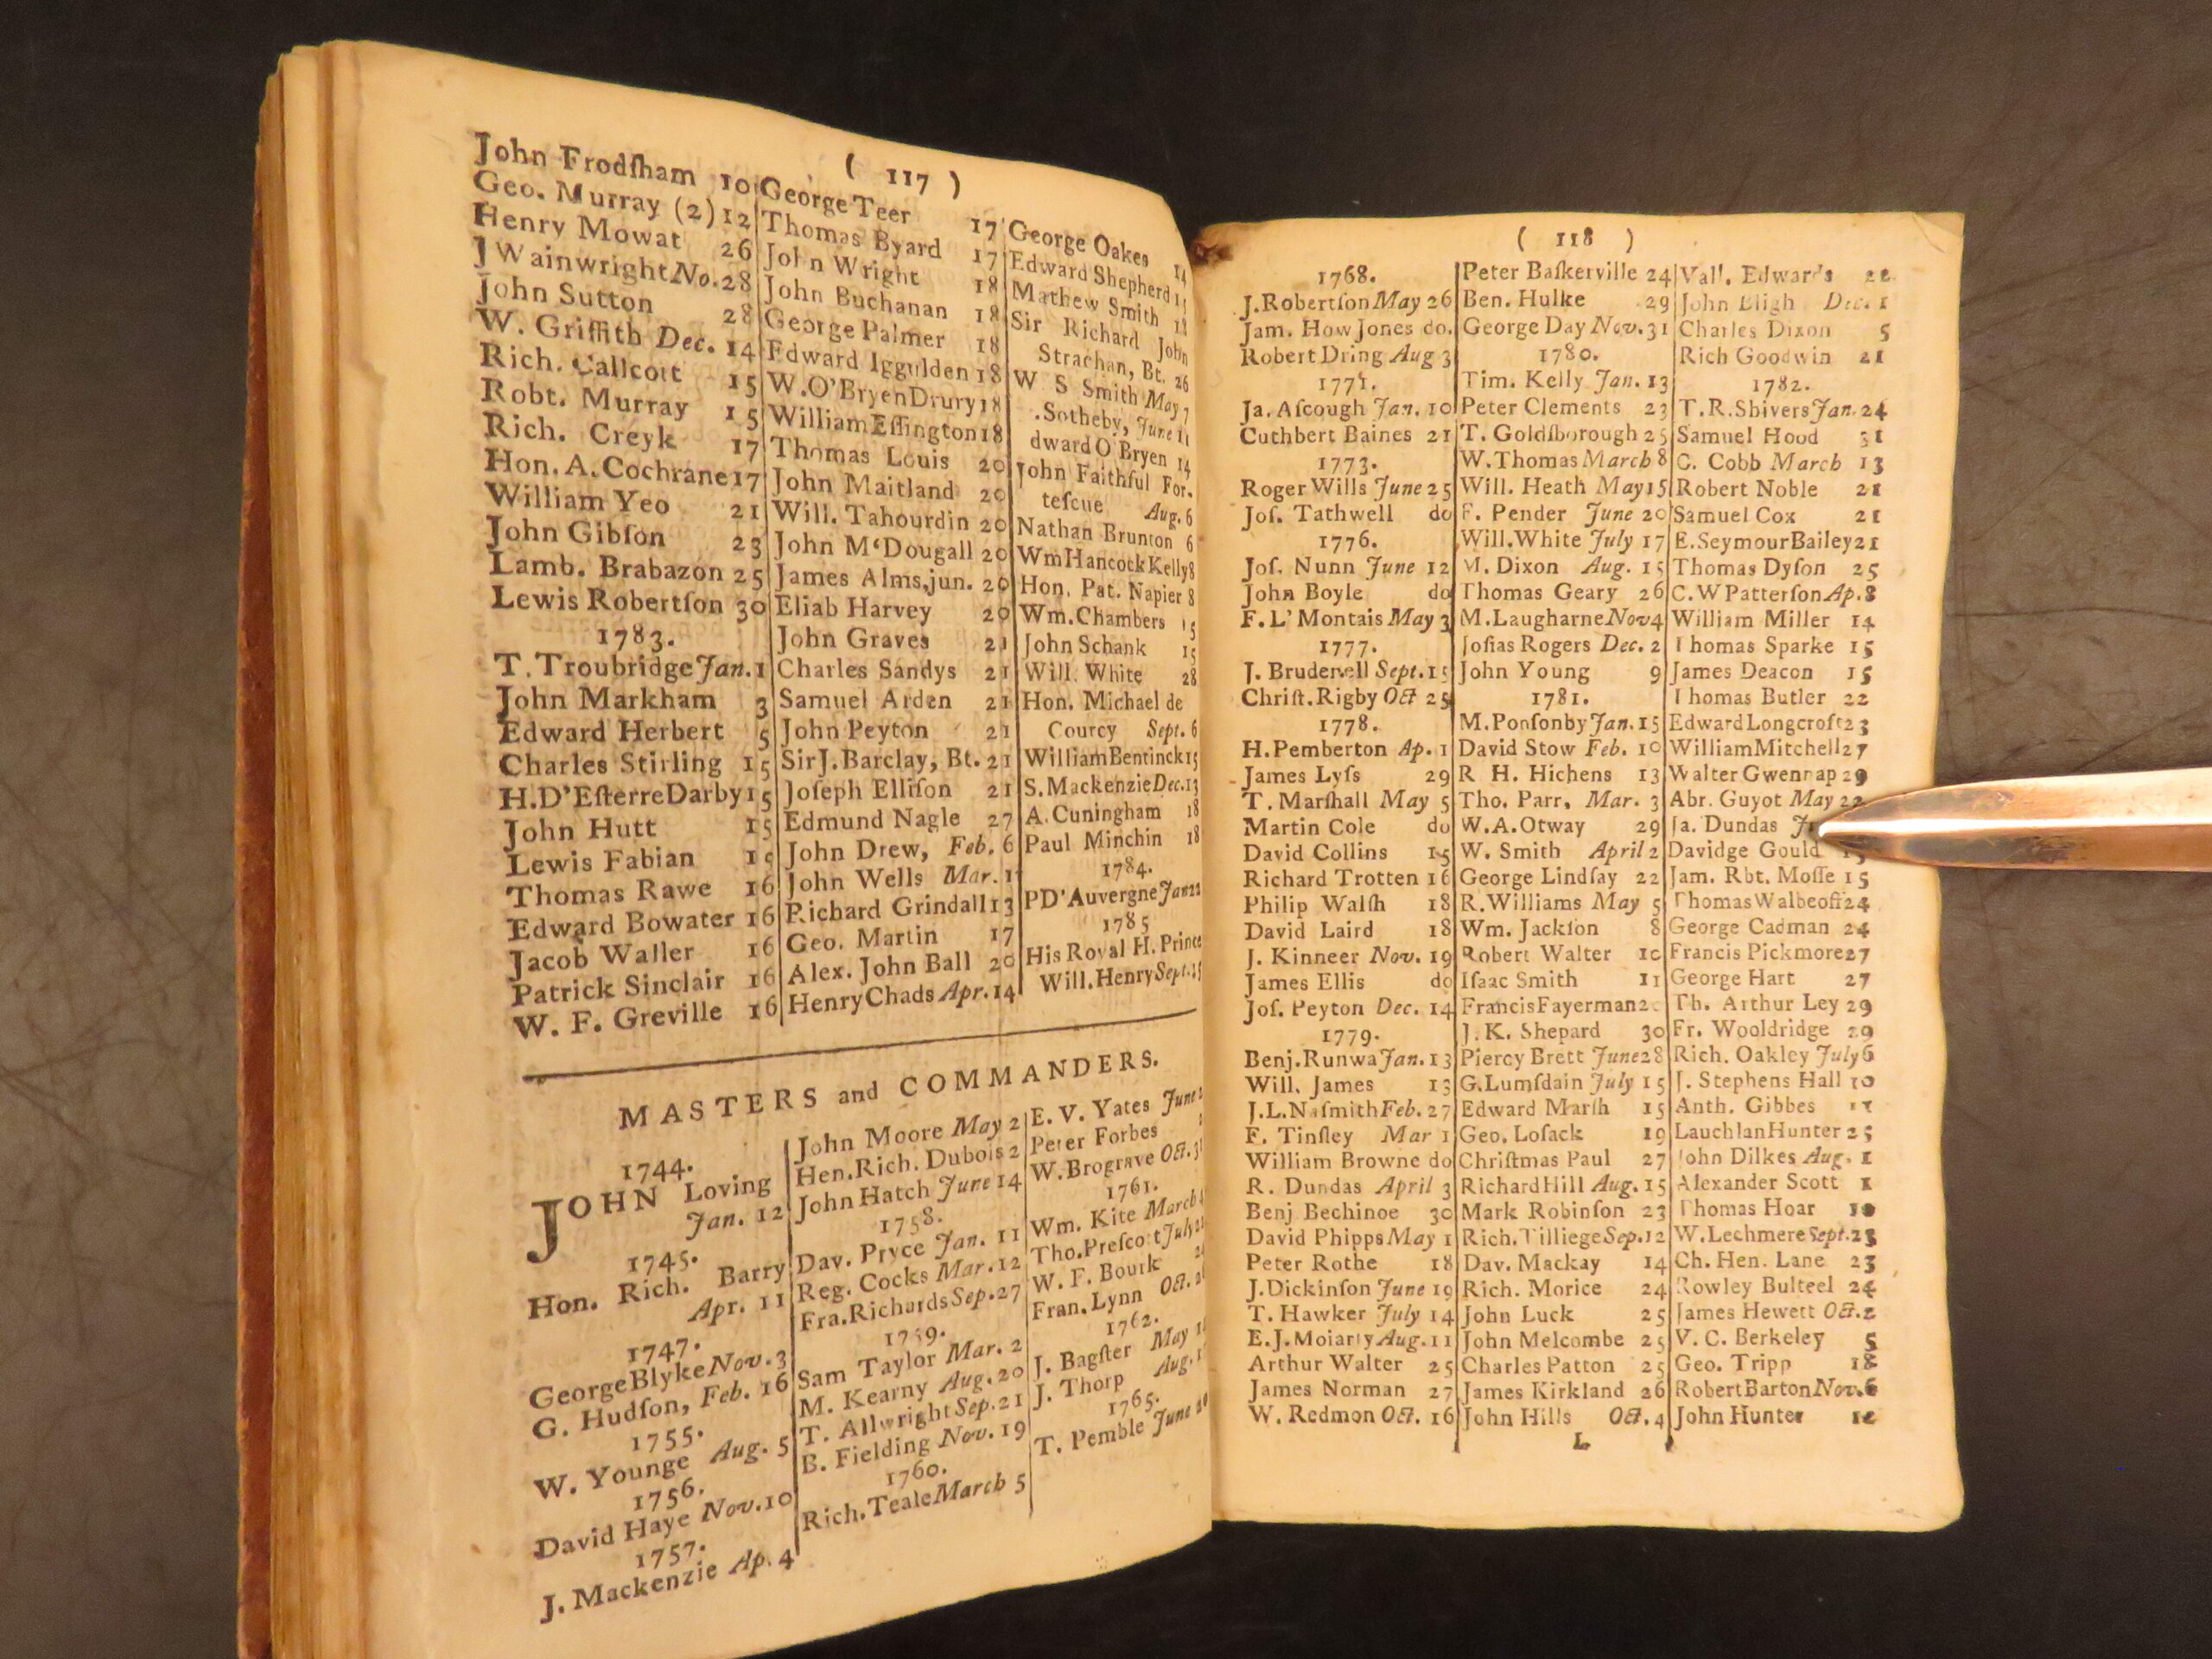 ( 117 )
John Frodſham 10
Geo. Murray (2) 12
Henry Mowat 26
J Wainwright No. 28
John Sutton 28
W. Griffith Dec. 14
Rich. Callcott 15
Robt. Murray 15
Rich. Creyk 17
Hon. A. Cochrane 17
William Yeo 21
John Gibſon 23
Lamb. Brabazon 25
Lewis Robertſon 30
1783.
T. Troubridge Jan. 1
John Markham 3
Edward Herbert 5
Charles Stirling 15
H. D'Eſterre Darby 15
John Hutt 15
Lewis Fabian 15
Thomas Rawe 16
Edward Bowater 16
Jacob Waller 16
Patrick Sinclair 16
W. F. Greville 16
George Teer 17
Thomas Byard 17
John Wright 18
John Buchanan 18
George Palmer 18
Edward Iggulden 18
W. O'Bryen Drury 18
William Eſſington 18
Thomas Louis 20
John Maitland 20
Will. Tahourdin 20
John M'Dougall 20
James Alms, jun. 20
Eliab Harvey 20
John Graves 21
Charles Sandys 21
Samuel Arden 21
John Peyton 21
Sir J. Barclay, Bt. 21
Joſeph Elliſon 21
Edmund Nagle 27
John Drew, Feb. 6
John Wells Mar. 1
Richard Grindall 13
Geo. Martin 17
Alex. John Ball 20
Henry Chads Apr. 14
George Oakes 14
Edward Shepherd
Mathew Smith
Sir Richard John
Strachan, Bt. 26
W S Smith May 7
Sotheby, June
dward O'Bryen 14
John Faithful For-
teſcue Aug. 6
Nathan Brunton 6
Wm Hancock Kelly 8
Hon. Pat. Napier 8
Wm. Chambers 15
John Schank 15
Will. White 28
Hon. Michael de
Courcy Sept. 6
William Bentinck 15
S. Mackenzie Dec. 13
A. Cuningham 18
Paul Minchin 18
1784.
P D'Auvergne Jan 22
1785
His Royal H. Prince
Will. Henry Sept.
MASTERS and COMMANDERS.
1744.
JOHN Loving
Jan. 12
1745.
Hon. Rich. Barry
Apr. 11
1747.
George Blyke Nov. 3
G. Hudſon, Feb. 16
1755.
W. Younge Aug. 5
1756.
David Haye Nov. 10
1757.
J. Mackenzie Ap. 4
John Moore May 2
Hen. Rich. Dubois 2
John Hatch June 14
1758.
Dav. Pryce Jan. 11
Reg. Cocks Mar. 12
Fra. Richards Sep. 27
1759.
Sam Taylor Mar. 2
M. Kearny Aug. 20
T. Allwright Sep. 21
B. Fielding Nov. 19
1760.
Rich. Teale March 5
E. V. Yates June
Peter Forbes
W. Brograve Oct.
1761.
Wm. Kite March
Tho. Preſcott July
W. F. Bourk
Fran. Lynn Oct.
1762.
J. Bagſter May
J. Thorp Aug.
1765.
T. Pemble June
( 118 )
1768.
J. Robertſon May 26
Jam. How Jones do.
Robert Dring Aug 3
1771.
Ja. Aſcough Jan. 10
Cuthbert Baines 21
1773.
Roger Wills June 25
Joſ. Tathwell do
1776.
Joſ. Nunn June 12
John Boyle do
F. L' Montais May 3
1777.
J. Brudenell Sept. 15
Chriſt. Rigby Oct 25
1778.
H. Pemberton Ap. 1
James Lyſs 29
T. Marſhall May 5
Martin Cole do
David Collins 15
Richard Trotten 16
Philip Walſh 18
David Laird 18
J. Kinneer Nov. 19
James Ellis do
Joſ. Peyton Dec. 14
1779.
Benj. Runwa Jan. 13
Will. James 13
J. L. Naſmith Feb. 27
F. Tinſley Mar 1
William Browne do
R. Dundas April 3
Benj Bechinoe 30
David Phipps May 1
Peter Rothe 18
J. Dickinſon June 19
T. Hawker July 14
E. J. Moiarty Aug. 11
Arthur Walter 25
James Norman 27
W. Redmon Oct. 16
Peter Baſkerville 24
Ben. Hulke 29
George Day Nov. 31
1780.
Tim. Kelly Jan. 13
Peter Clements 23
T. Goldſborough 25
W. Thomas March 8
Will. Heath May 15
F. Pender June 20
Will. White July 17
M. Dixon Aug. 15
Thomas Geary 26
M. Laugharne Nov 4
Joſias Rogers Dec. 2
John Young 9
1781.
M. Ponſonby Jan. 15
David Stow Feb. 10
R H. Hichens 13
Tho. Parr, Mar. 3
W. A. Otway 29
W. Smith April 2
George Lindſay 22
R. Williams May 5
Wm. Jackſon 8
Robert Walter 10
Iſaac Smith 11
Francis Fayerman 20
J. K. Shepard 30
Piercy Brett June 28
G. Lumſdain July 15
Edward Marſh 15
Geo. Loſack 19
Chriſtmas Paul 27
Richard Hill Aug. 15
Mark Robinſon 23
Rich. Tilliege Sep. 12
Dav. Mackay 14
Rich. Morice 24
John Luck 25
John Melcombe 25
Charles Patton 25
James Kirkland 26
John Hills Oct. 4
L
Vall. Edwards 22
John Bligh Dec. 1
Charles Dixon 5
Rich Goodwin 21
1782.
T. R. Shivers Jan. 24
Samuel Hood 31
C. Cobb March 13
Robert Noble 21
Samuel Cox 21
E. Seymour Bailey 21
Thomas Dyſon 25
C. W Patterſon Ap. 8
William Miller 14
Thomas Sparke 15
James Deacon 15
Thomas Butler 22
Edward Longcroft 23
William Mitchell 27
Walter Gwennap 29
Abr. Guyot May 22
Ja. Dundas
Davidge Gould
Jam. Rbt. Moſſe 15
Thomas Walbeoff 24
George Cadman 24
Francis Pickmore 27
George Hart 27
Th. Arthur Ley 29
Fr. Wooldridge 29
Rich. Oakley July 6
J. Stephens Hall 10
Anth. Gibbes
Lauchlan Hunter 25
John Dilkes Aug. 1
Alexander Scott 1
Thomas Hoar 10
W. Lechmere Sept. 23
Ch. Hen. Lane 23
Rowley Bulteel 24
James Hewett Oct. 2
V. C. Berkeley 5
Geo. Tripp 18
Robert Barton Nov. 6
John Hunter 12